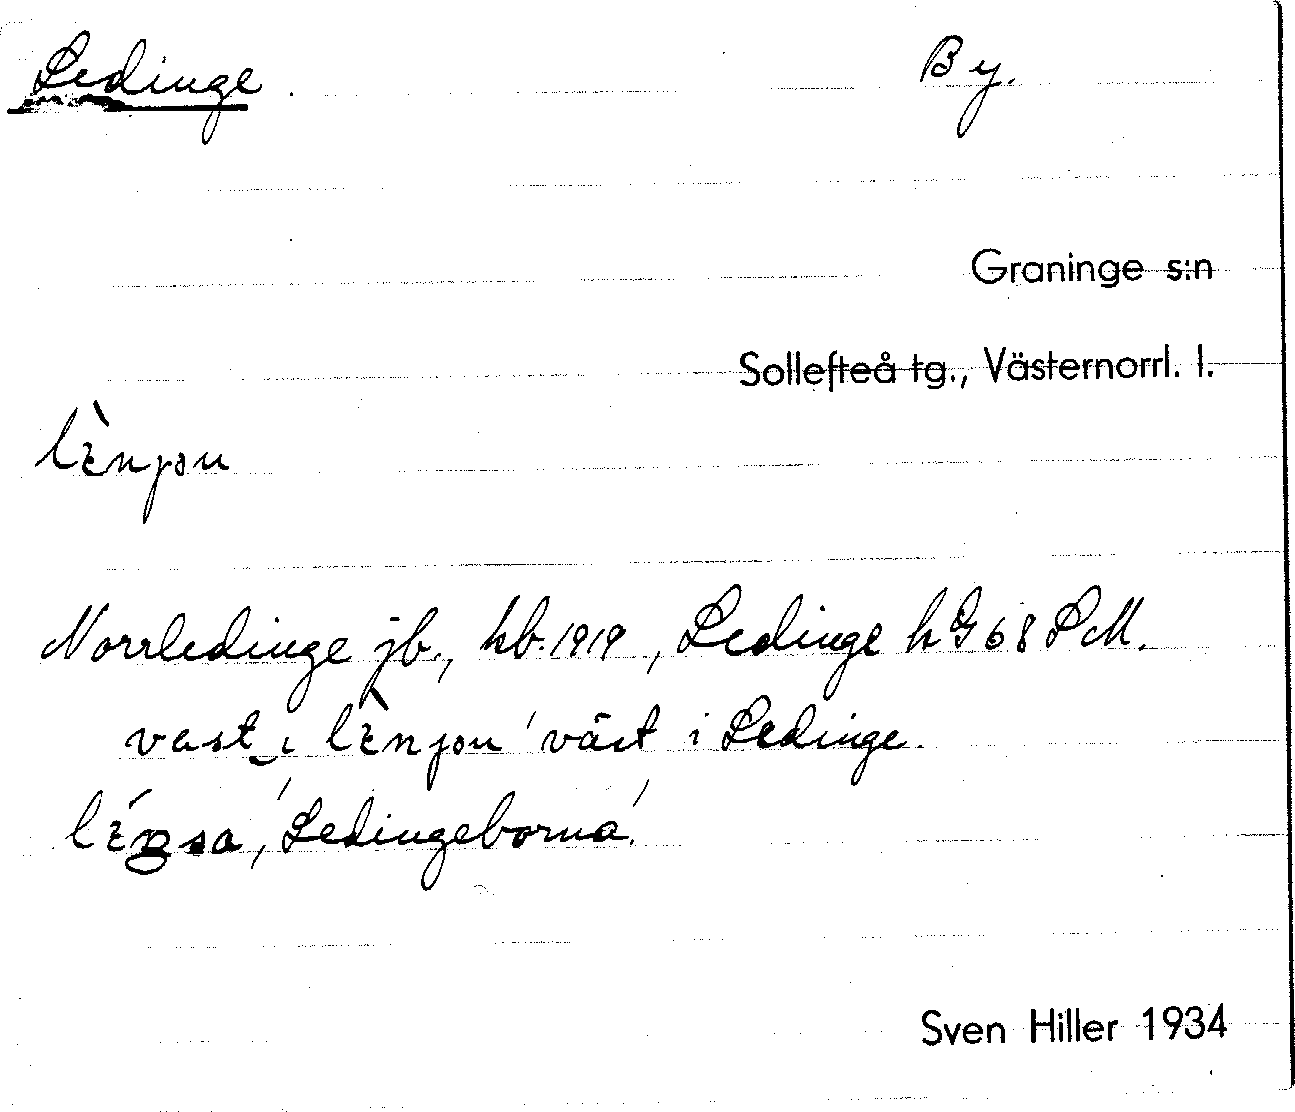 Ledinge. By.
Graninge s:n
Sollefteå tg., Västernorrl. l.
lènjən
Norrledinge jb., kb. 1919, Ledinge h G 68 S M.
vast i lènjən 'väst i Ledinge.
'Ledingeborna'.
Sven Hiller 1934